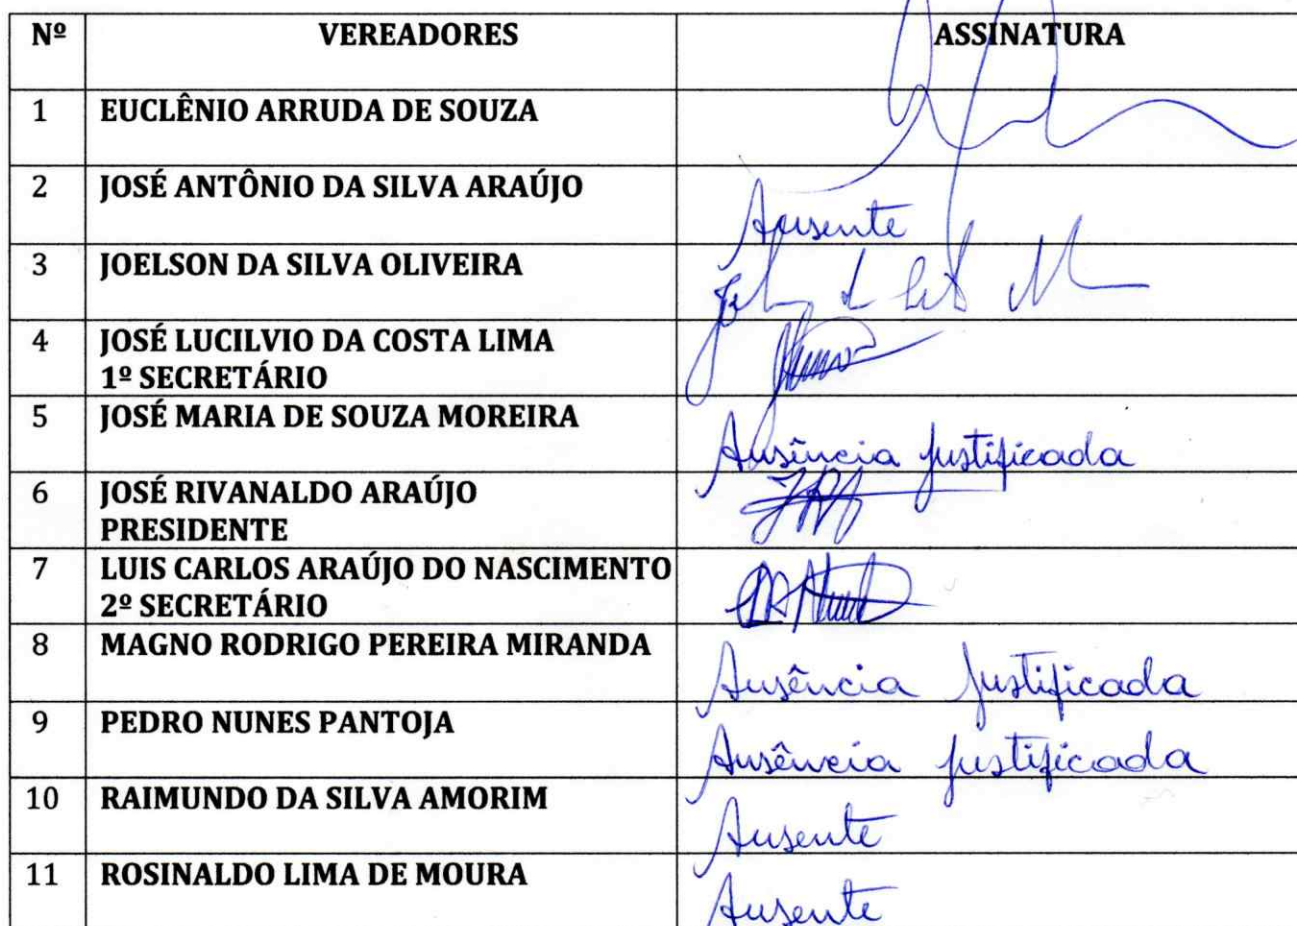 Nº VEREADORES ASSINATURA
1 EUCLÊNIO ARRUDA DE SOUZA
2 JOSÉ ANTÔNIO DA SILVA ARAÚJO Ausente
3 JOELSON DA SILVA OLIVEIRA
4 JOSÉ LUCILVIO DA COSTA LIMA
1º SECRETÁRIO
5 JOSÉ MARIA DE SOUZA MOREIRA Ausência justificada
6 JOSÉ RIVANALDO ARAÚJO
PRESIDENTE
7 LUIS CARLOS ARAÚJO DO NASCIMENTO
2º SECRETÁRIO
8 MAGNO RODRIGO PEREIRA MIRANDA Ausência Justificada
9 PEDRO NUNES PANTOJA Ausência justificada
10 RAIMUNDO DA SILVA AMORIM Ausente
11 ROSINALDO LIMA DE MOURA Ausente